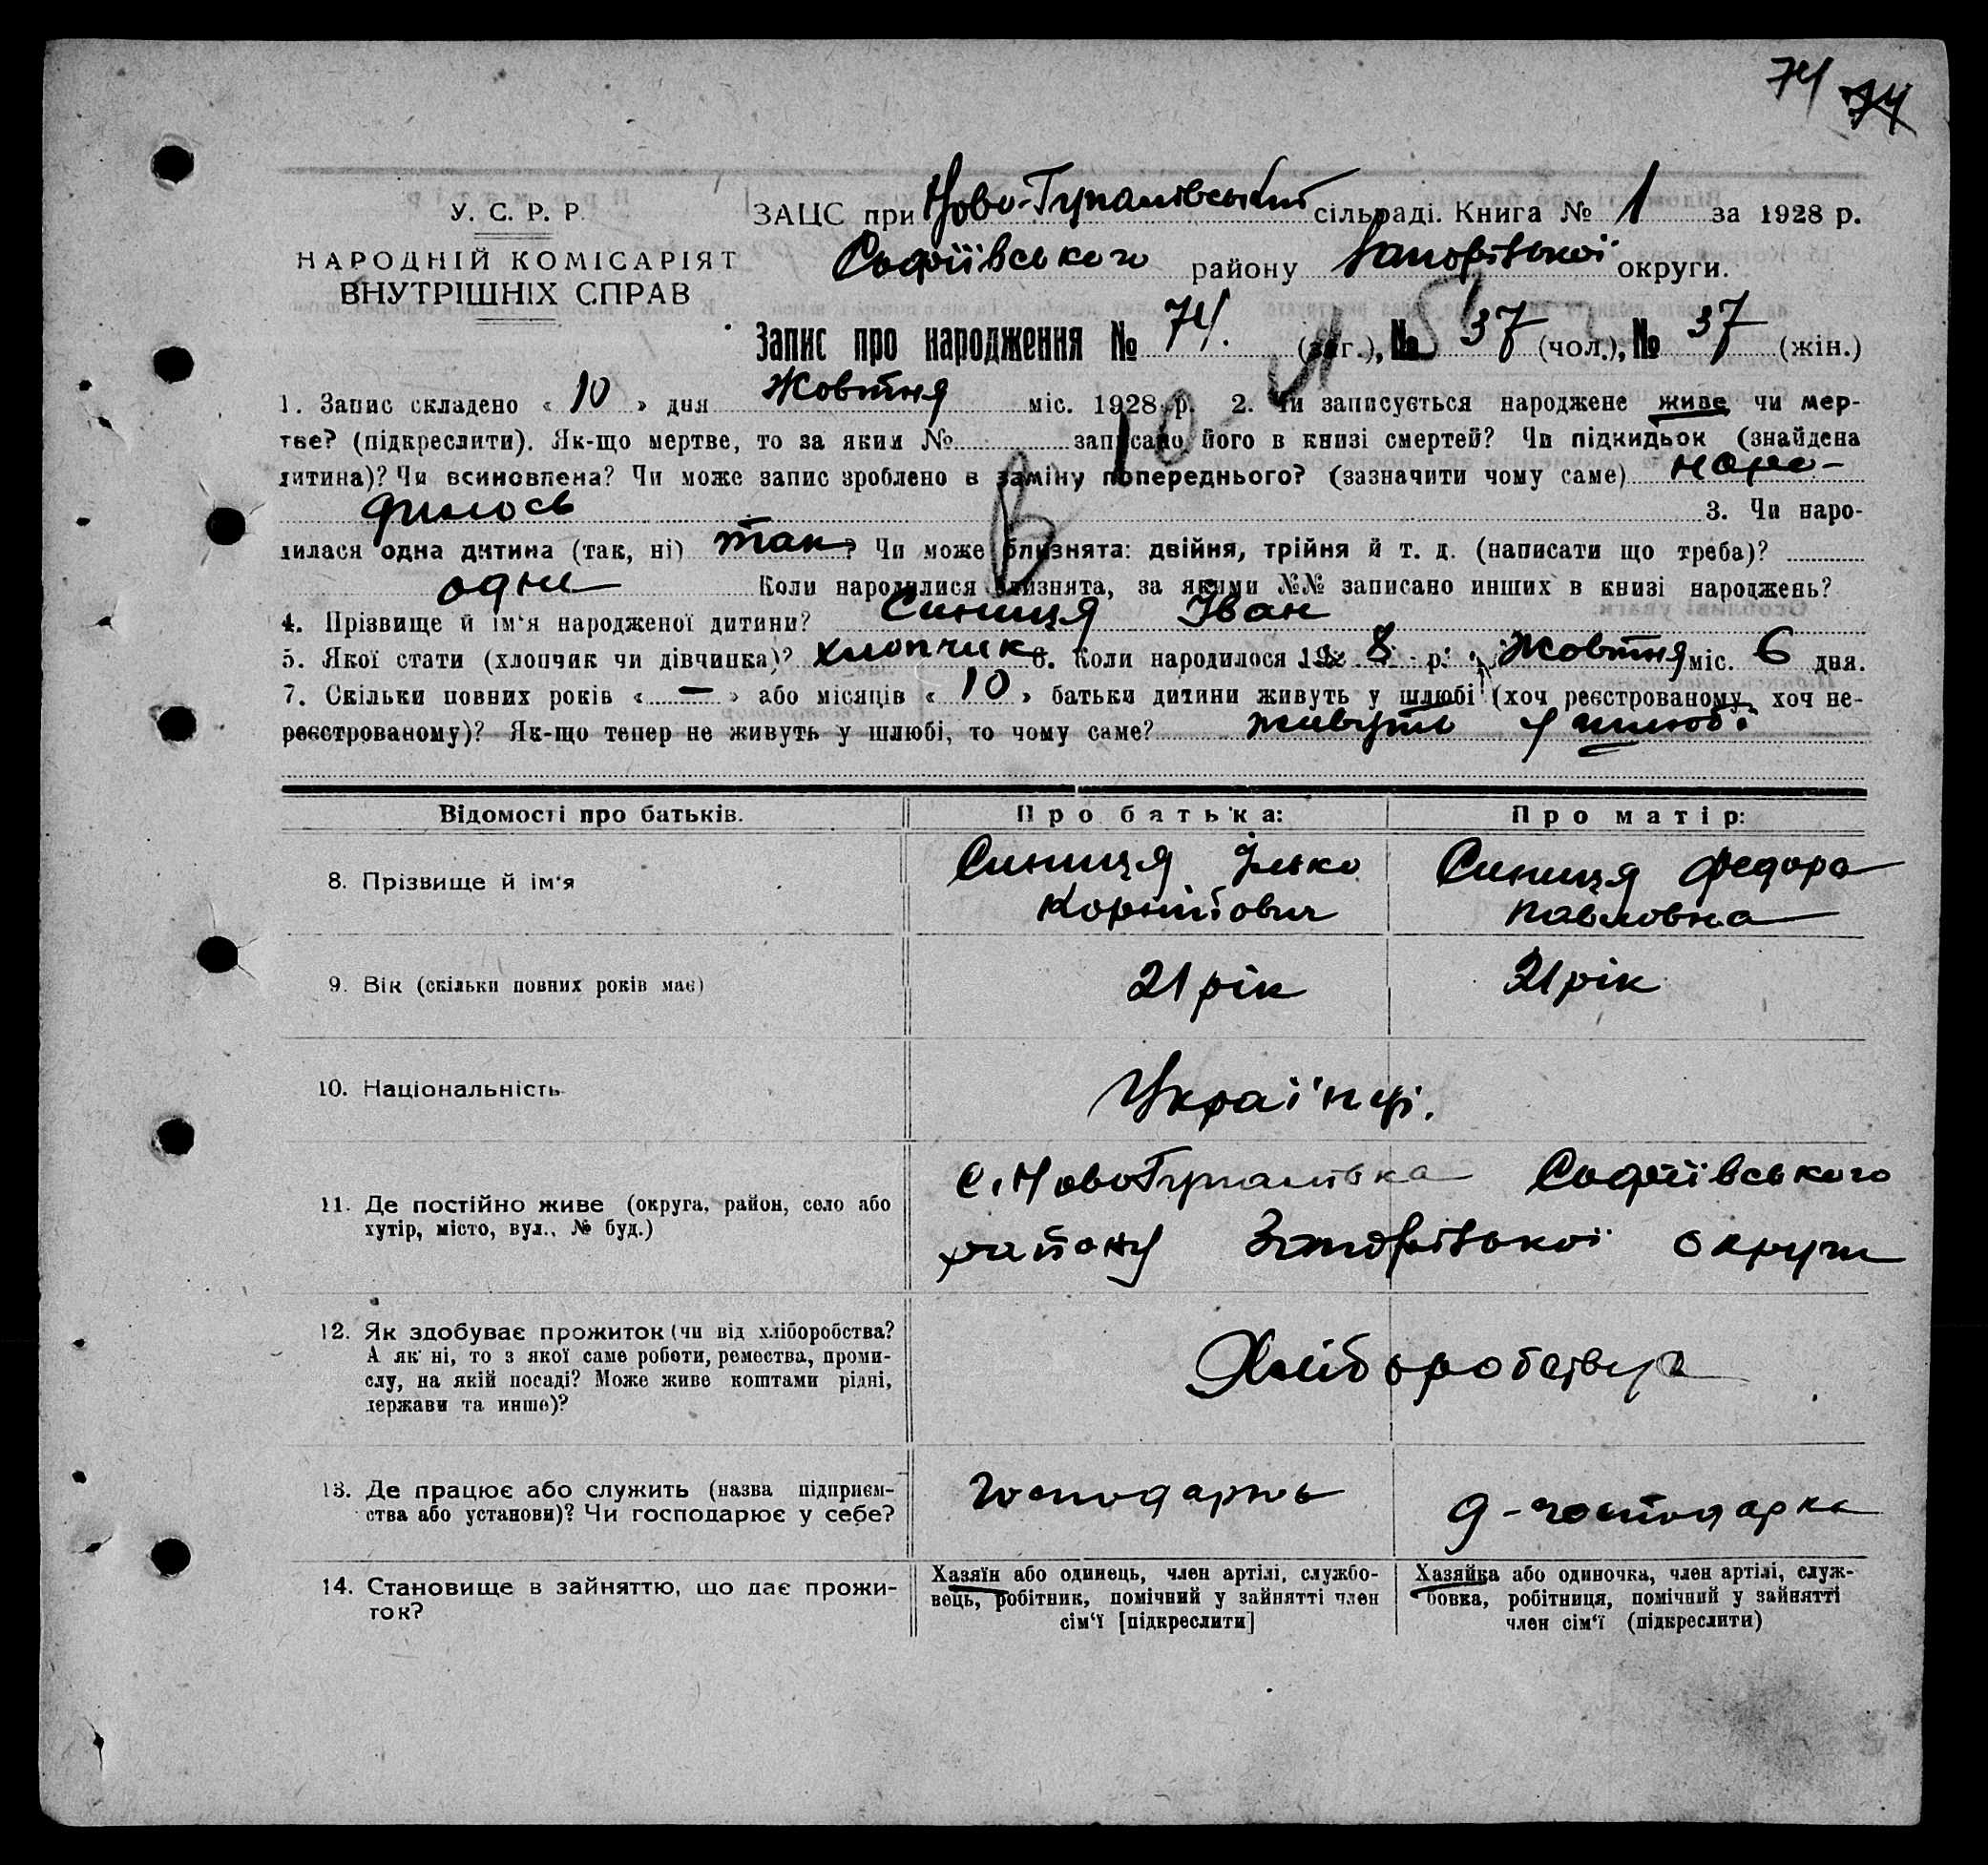 74 74
У. С. Р. Р.
НАРОДНІЙ КОМІСАРІЯТ
ВНУТРІШНІХ СПРАВ
ЗАЦС при Ново-Гупалівській сільраді. Книга № 1 за 1928 р.
Софіївського району Запорізької округи.
Запис про народження № 74. (заг.), № 37 (чол.), № 37 (жін.)
1. Запис складено « 10 » дня Жовтня міс. 1928 р. 2. Чи записується народжене живе чи мер-
тве? (підкреслити). Як-що мертве, то за яким № записано його в книзі смертей? Чи підкидьок (знайдена
дитина)? Чи всиновлена? Чи може запис зроблено в заміну попереднього? (зазначити чому саме) наро-
дилось 3. Чи наро-
дилася одна дитина (так, ні) так? Чи може близнята: двійня, трійня й т. д. (написати що треба)?
одне Коли народилися близнята, за якими №№ записано инших в книзі народжень?
4. Прізвище й ім'я народженої дитини? Синиця Іван
5. Якої стати (хлопчик чи дівчинка)? хлопчик 6. Коли народилося 192 8 р. Жовтня міс. 6 дня.
7. Скільки повних років « — » або місяців « 10 » батьки дитини живуть у шлюбі (хоч реєстрованому, хоч не-
реєстрованому)? Як-що тепер не живуть у шлюбі, то чому саме? живуть у шлюбі
Відомості про батьків. Про батька: Про матір:
8. Прізвище й ім'я Синиця Ілько Синиця Федора
Корнійович Павловна
9. Вік (скільки повних років має) 21 рік 21 рік
10. Національність Українці.
11. Де постійно живе (округа, район, село або
хутір, місто, вул., № буд.)
с. НовоГупалівка Софіївського
району Запорізької округи
12. Як здобуває прожиток (чи від хліборобства?
А як ні, то з якої саме роботи, ремества, проми-
слу, на якій посаді? Може живе коштами рідні,
держави та инше)?
Хліборобства
13. Де працює або служить (назва підприєм-
ства або установи)? Чи господарює у себе?
господарює д-господарка
14. Становище в зайняттю, що дає прожи-
ток?
Хазяїн або одинець, член артілі, службо-
вець, робітник, помічний у зайнятті член
сім'ї [підкреслити]
Хазяйка або одиночка, член артілі, служ-
бовка, робітниця, помічний у зайнятті
член сім'ї (підкреслити)